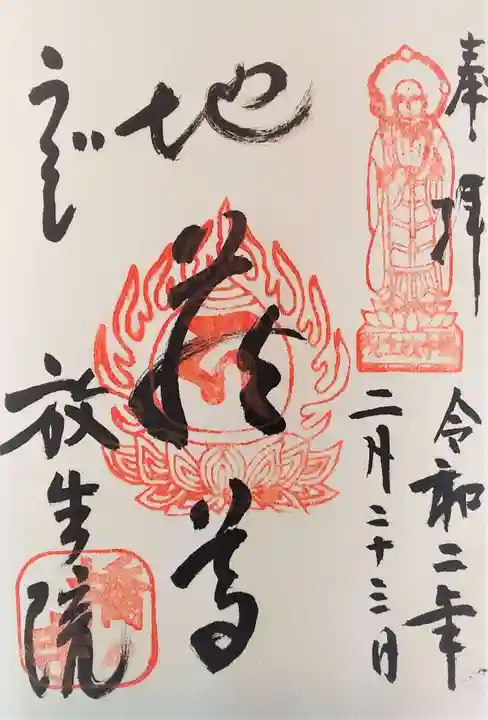 奉拝
令和二年
二月二十三日
地蔵尊
放生院